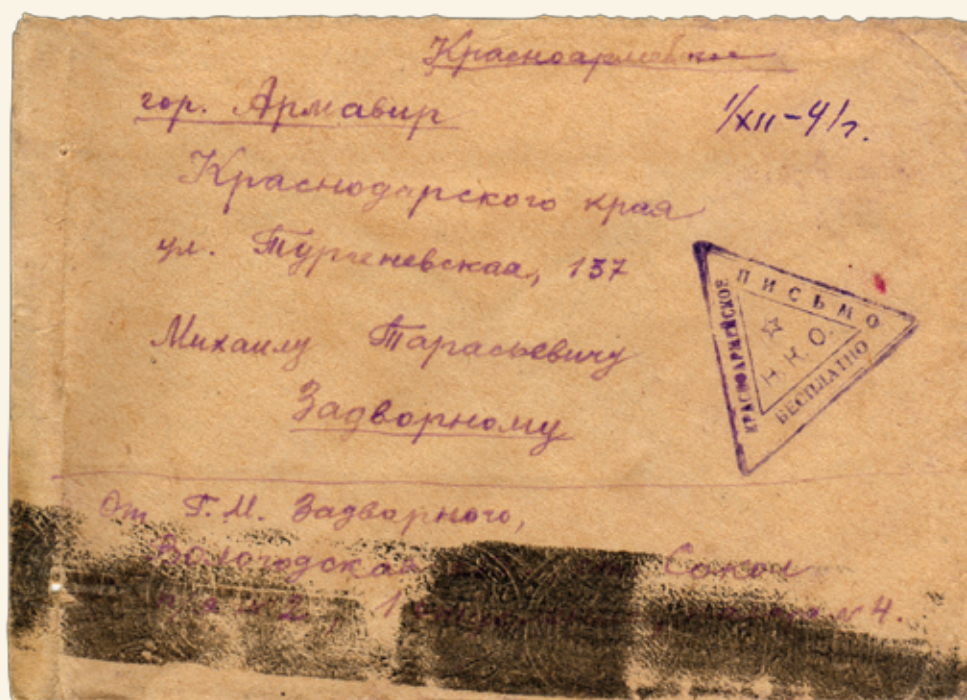 Красноармейское
гор. Армавир
1/XII-41г.
Краснодарского края
ул. Тургеневская, 137
Михаилу Тарасьевичу
Задворному
КРАСНОАРМЕЙСКОЕ
ПИСЬМО
БЕСПЛАТНО
Н.К.О.
От Г.М. Задворного,
Вологодская Сокол
№ 4.